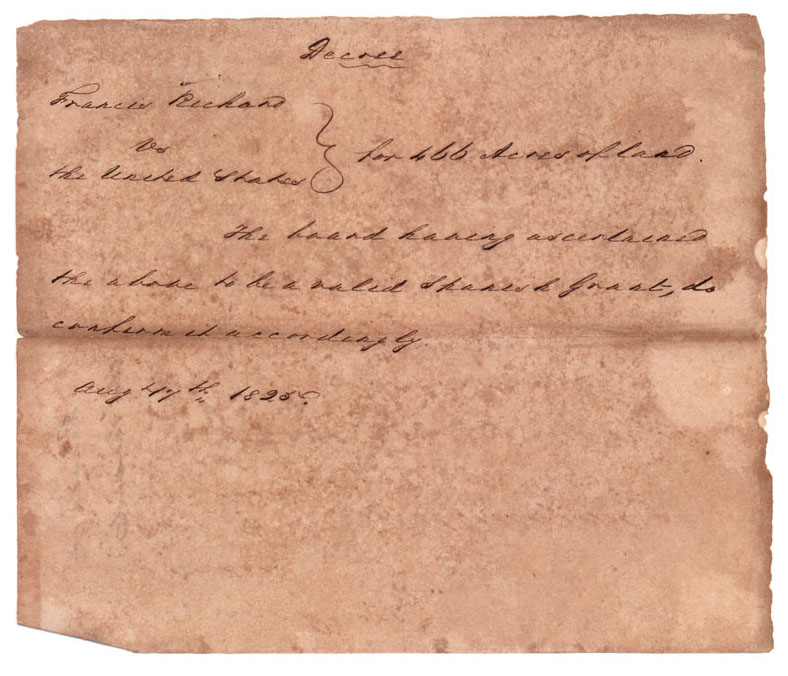 Decree
Francis Richard
Vs
the United States
for 466 Acres of land.
The board having ascertained
the above to be a valid Spanish Grant, do
confirm it accordingly.
Aug th 1825